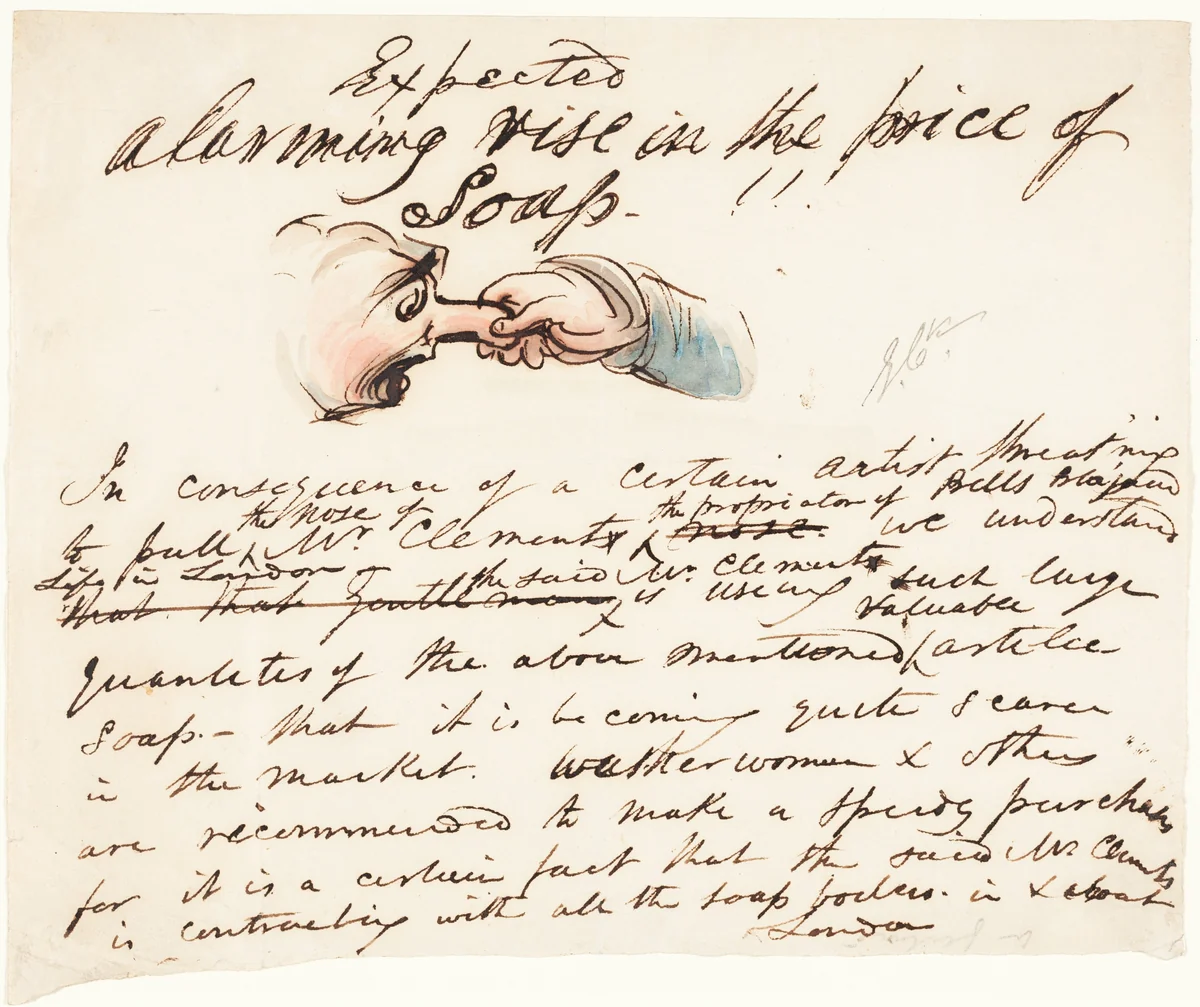 Expected
alarming rise in the price of
Soap - !!!
G. Ck.
In consequence of a certain artist threat'ning
to pull the nose of Mr. Clements the proprietor of Bells
Life in London - nose. we understand
that that gentleman the said Mr. Clements is using such large
quantetes of the above mentioned valuable article
Soap. - that it is becoming quite scarce
in the market. washerwomen & others
are recommended to make a speedy purchase
for it is a certain fact that the said Mr Clements
is contracting with all the soap boilers. in & about
London